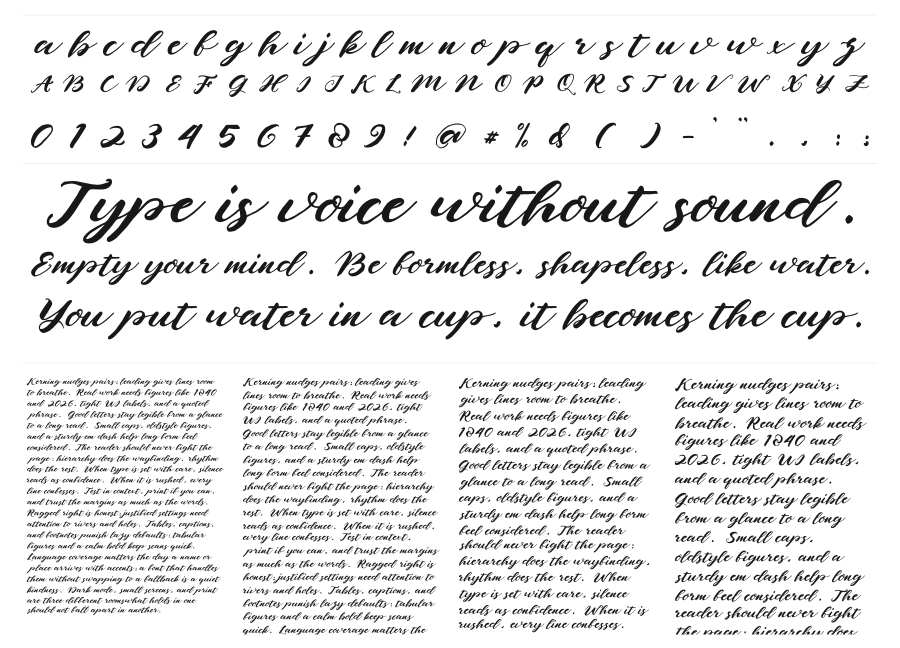 a b c d e f g h i j k l m n o p q r s t u v w x y z
A B C D E F G H I J K L M N O P Q R S T U V W X Y Z
0 1 2 3 4 5 6 7 8 9 ! @ # % & ( ) - ' " . , : ;
Type is voice without sound.
Empty your mind. Be formless, shapeless, like water.
You put water in a cup, it becomes the cup.
Kerning nudges pairs; leading gives lines room
to breathe. Real work needs figures like 1040
and 2026, tight UI labels, and a quoted
phrase. Good letters stay legible from a glance
to a long read. Small caps, oldstyle figures,
and a sturdy em dash help long form feel
considered. The reader should never fight the
page; hierarchy does the wayfinding, rhythm
does the rest. When type is set with care, silence
reads as confidence. When it is rushed, every
line confesses. Test in context, print if you can,
and trust the margins as much as the words.
Ragged right is honest; justified settings need
attention to rivers and holes. Tables, captions,
and footnotes punish lazy defaults; tabular
figures and a calm bold keep scans quick.
Language coverage matters the day a name or
place arrives with accents; a font that handles
them without swapping to a fallback is a quiet
kindness. Dark mode, small screens, and print
are three different rooms; what holds in one
should not fall apart in another.
Kerning nudges pairs; leading gives
lines room to breathe. Real work needs
figures like 1040 and 2026, tight
UI labels, and a quoted phrase.
Good letters stay legible from a glance
to a long read. Small caps, oldstyle
figures, and a sturdy em dash help
long form feel considered. The reader
should never fight the page; hierarchy
does the wayfinding, rhythm does the
rest. When type is set with care, silence
reads as confidence. When it is rushed,
every line confesses. Test in context,
print if you can, and trust the margins
as much as the words. Ragged right is
honest; justified settings need attention to
rivers and holes. Tables, captions, and
footnotes punish lazy defaults; tabular
figures and a calm bold keep scans
quick. Language coverage matters the
Kerning nudges pairs; leading
gives lines room to breathe.
Real work needs figures like
1040 and 2026, tight UI
labels, and a quoted phrase.
Good letters stay legible from a
glance to a long read. Small
caps, oldstyle figures, and a
sturdy em dash help long form
feel considered. The reader
should never fight the page;
hierarchy does the wayfinding,
rhythm does the rest. When
type is set with care, silence
reads as confidence. When it is
rushed, every line confesses.
Kerning nudges pairs;
leading gives lines room to
breathe. Real work needs
figures like 1040 and
2026, tight UI labels,
and a quoted phrase.
Good letters stay legible
from a glance to a long
read. Small caps,
oldstyle figures, and a
sturdy em dash help long
form feel considered. The
reader should never fight
the page; hierarchy does